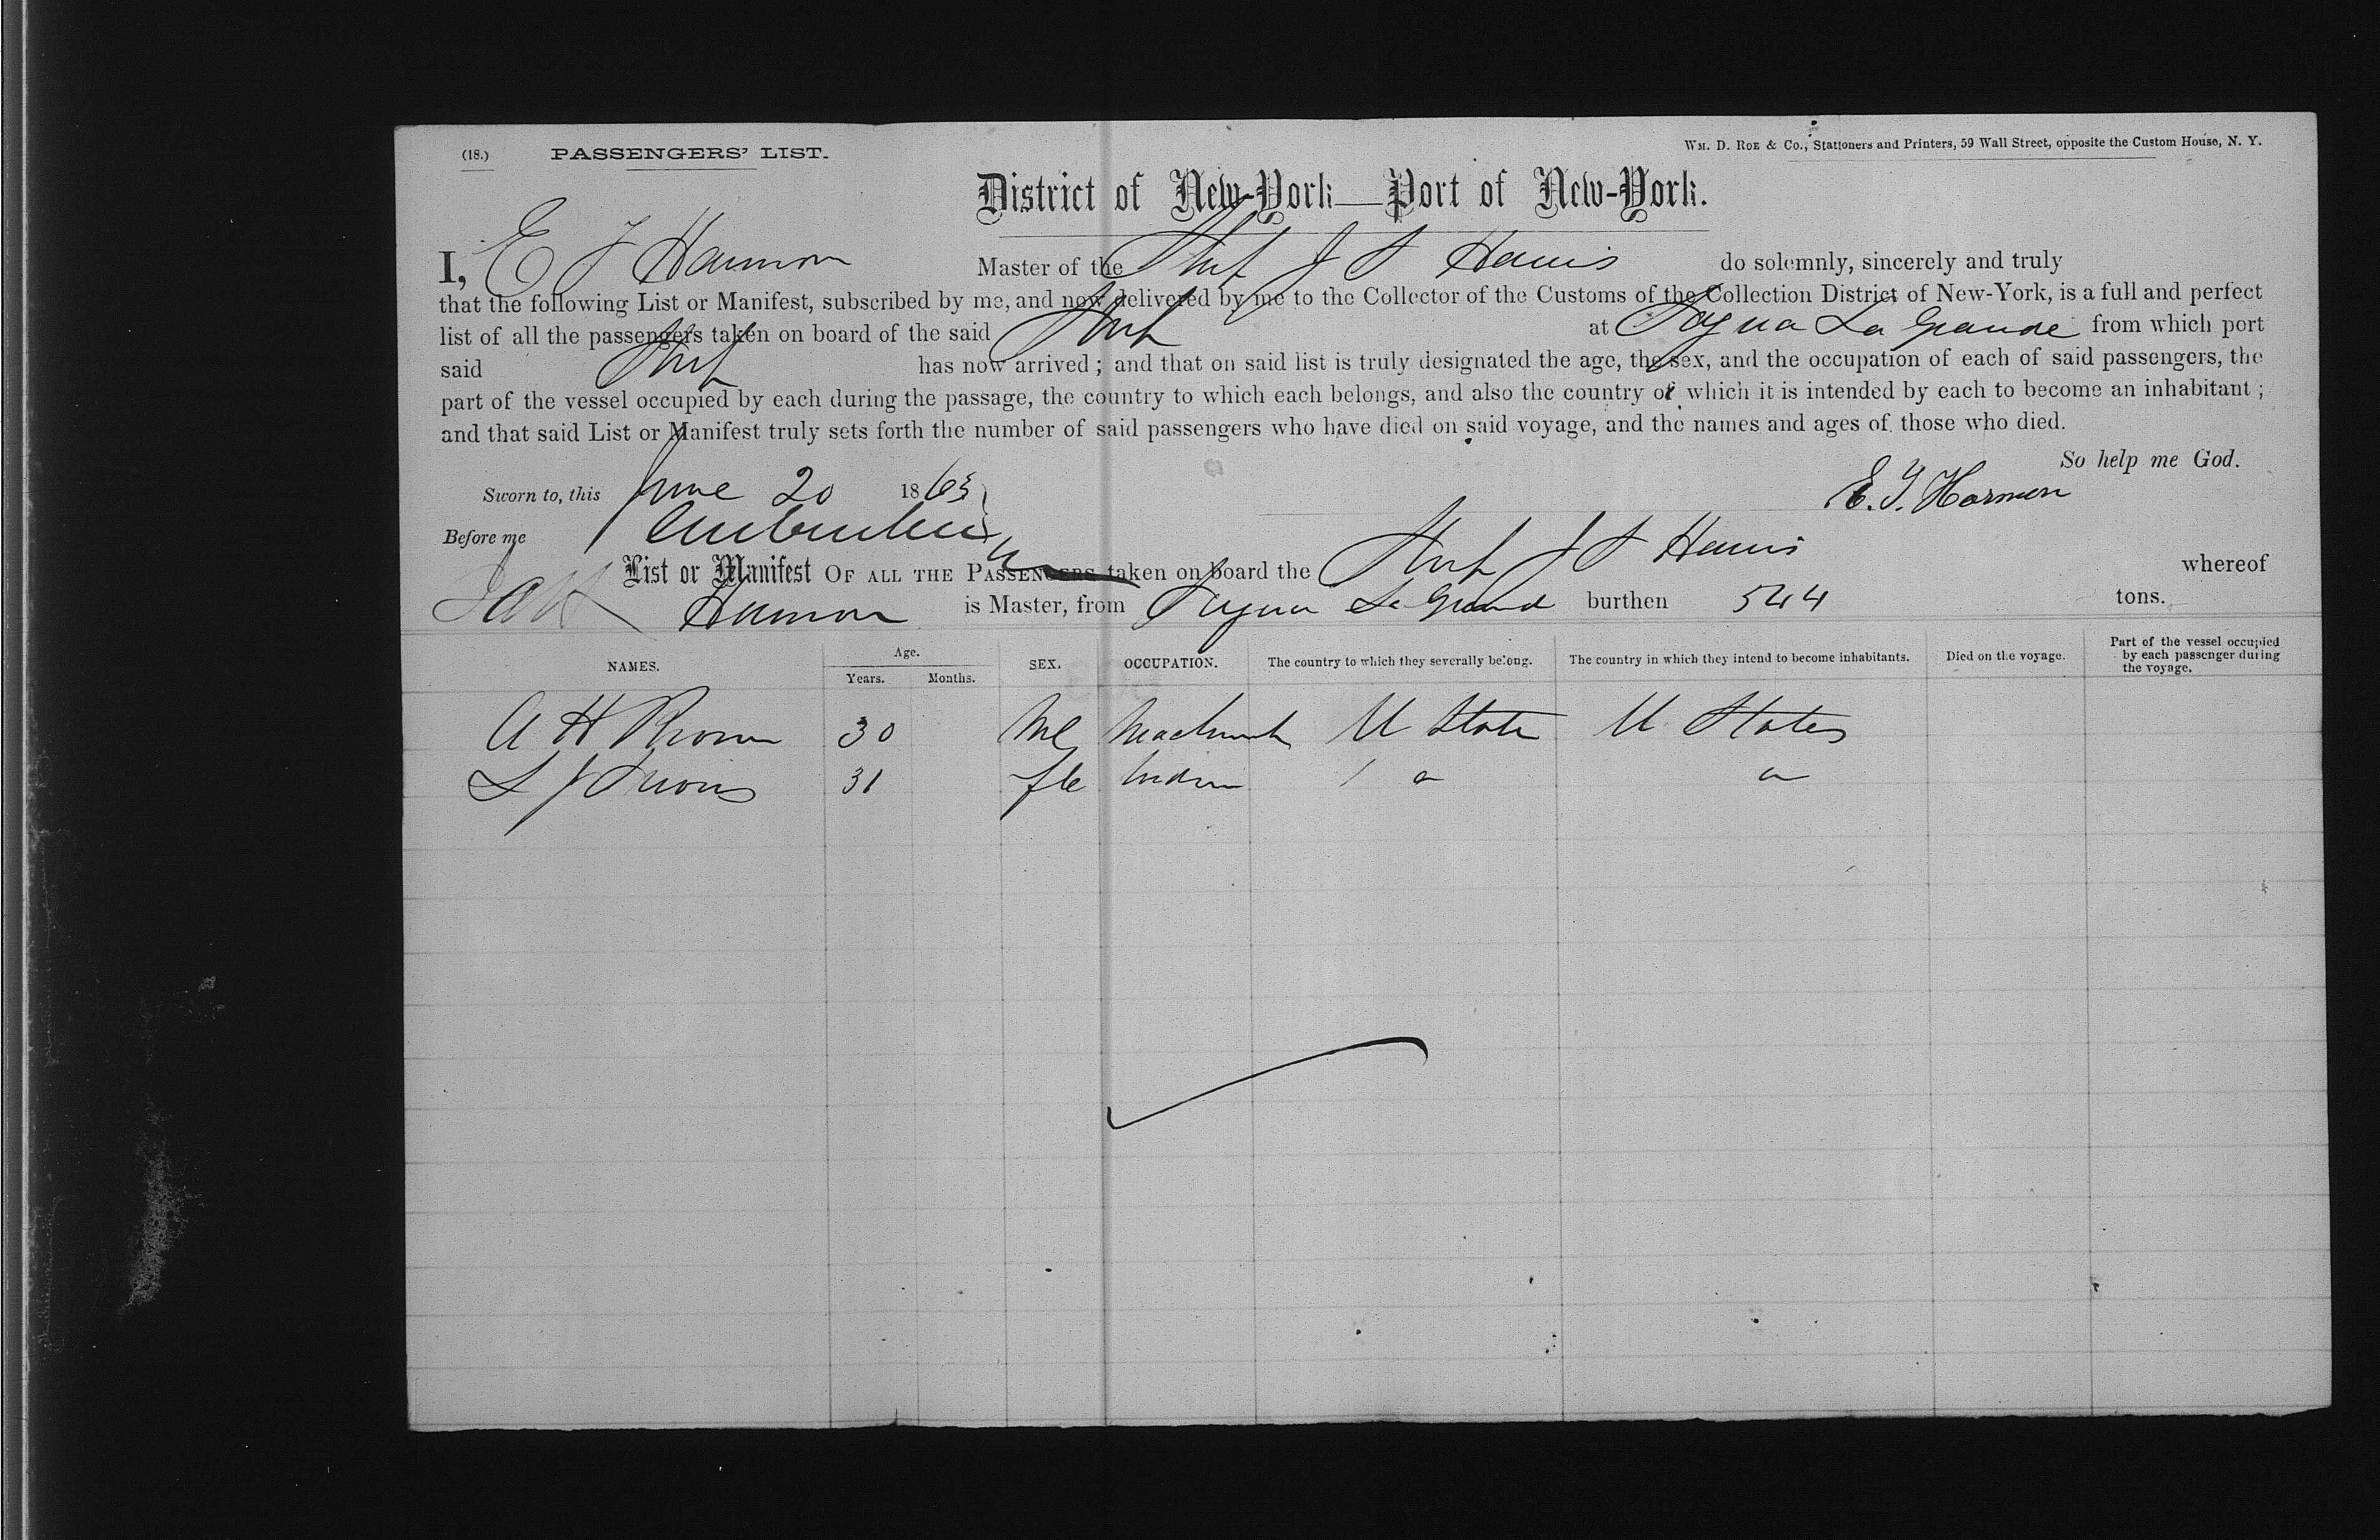 (18.) PASSENGERS' LIST. Wm. D. Roe & Co., Stationers and Printers, 59 Wall Street, opposite the Custom House, N. Y.
District of New-York—Port of New-York.
I, E J Harmon Master of the J S Harris do solemnly, sincerely and truly
that the following List or Manifest, subscribed by me, and now delivered by me to the Collector of the Customs of the Collection District of New-York, is a full and perfect
list of all the passengers taken on board of the said at Sagua La Grande from which port
said has now arrived; and that on said list is truly designated the age, the sex, and the occupation of each of said passengers, the
part of the vessel occupied by each during the passage, the country to which each belongs, and also the country of which it is intended by each to become an inhabitant;
and that said List or Manifest truly sets forth the number of said passengers who have died on said voyage, and the names and ages of those who died.
So help me God.
Sworn to, this June 20 1863 E. J. Harmon
Before me
List or Manifest OF ALL THE PASSENGERS taken on board the J S Harris whereof
Harmon is Master, from Sagua La Grand burthen 544 tons.
NAMES. Age. Years. Months. SEX. OCCUPATION. The country to which they severally belong. The country in which they intend to become inhabitants. Died on the voyage. Part of the vessel occupied by each passenger during the voyage.
A H Brown 30 Me U State U States
31 fe